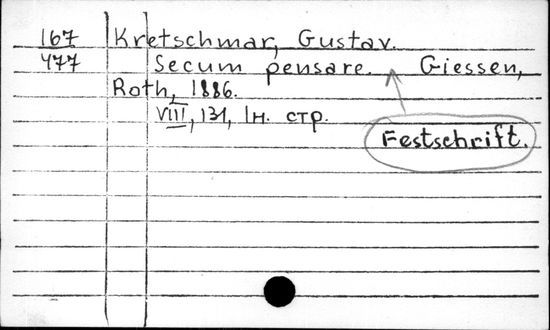 167 Kretschmar, Gustav.
477 Secum pensare. Giessen,
Roth, 1886.
VIII, 131, 1н. стр.
Festschrift.